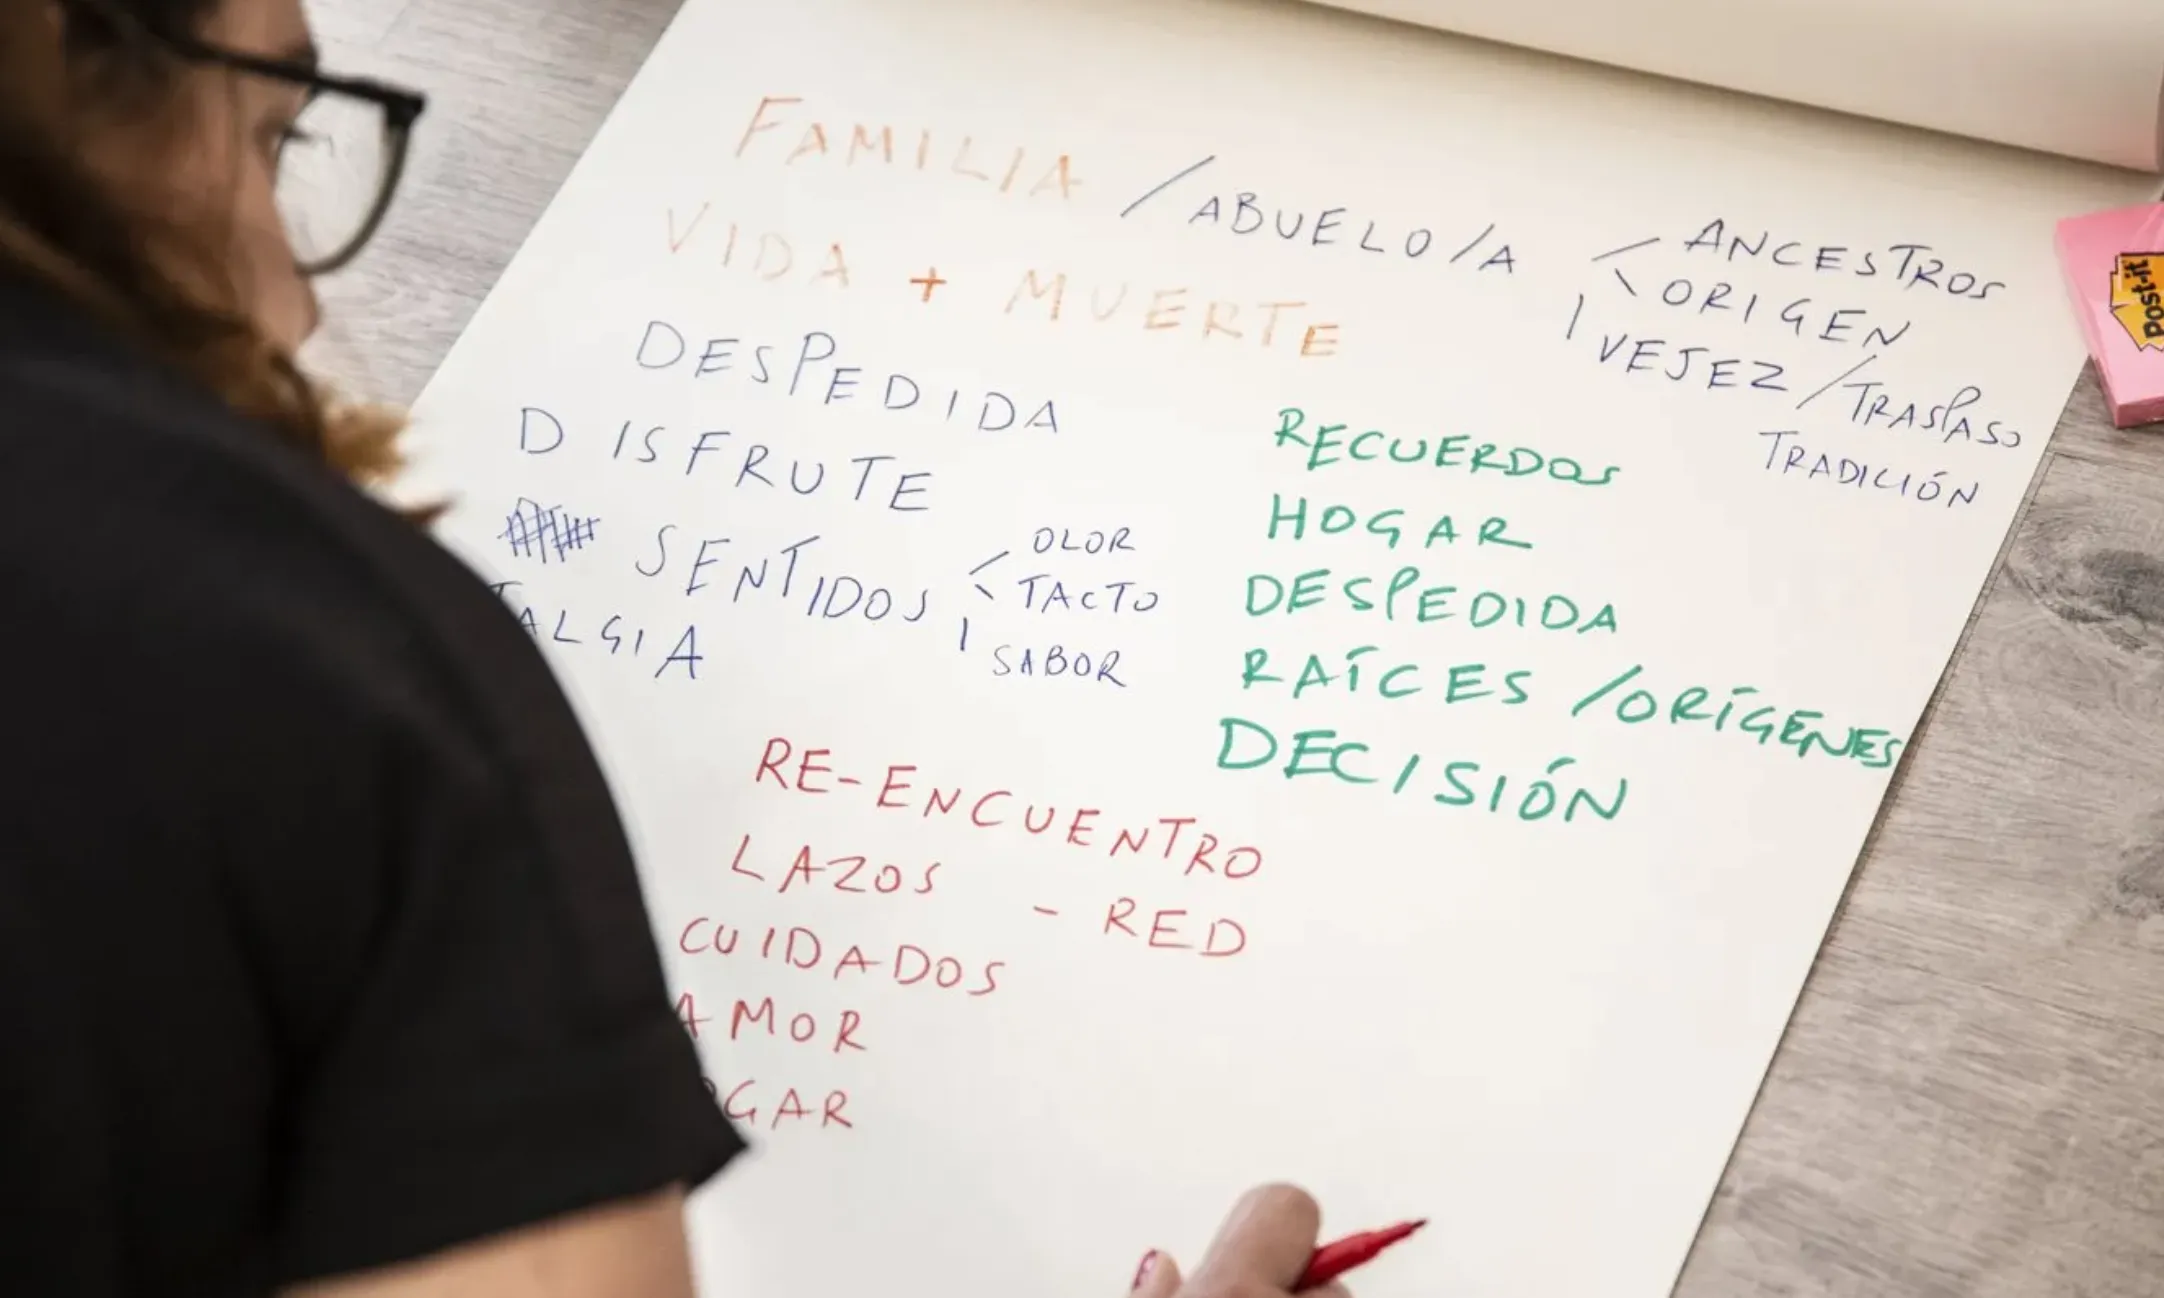 FAMILIA / ABUELO/A
ANCESTROS
ORIGEN
VEJEZ / TRASPASO
TRADICIÓN
VIDA + MUERTE
DESPEDIDA
DISFRUTE
SENTIDOS
OLOR
TACTO
SABOR
TALGIA
RECUERDOS
HOGAR
DESPEDIDA
RAÍCES / ORÍGENES
DECISIÓN
RE-ENCUENTRO
LAZOS - RED
CUIDADOS
AMOR
OGAR
Post-it